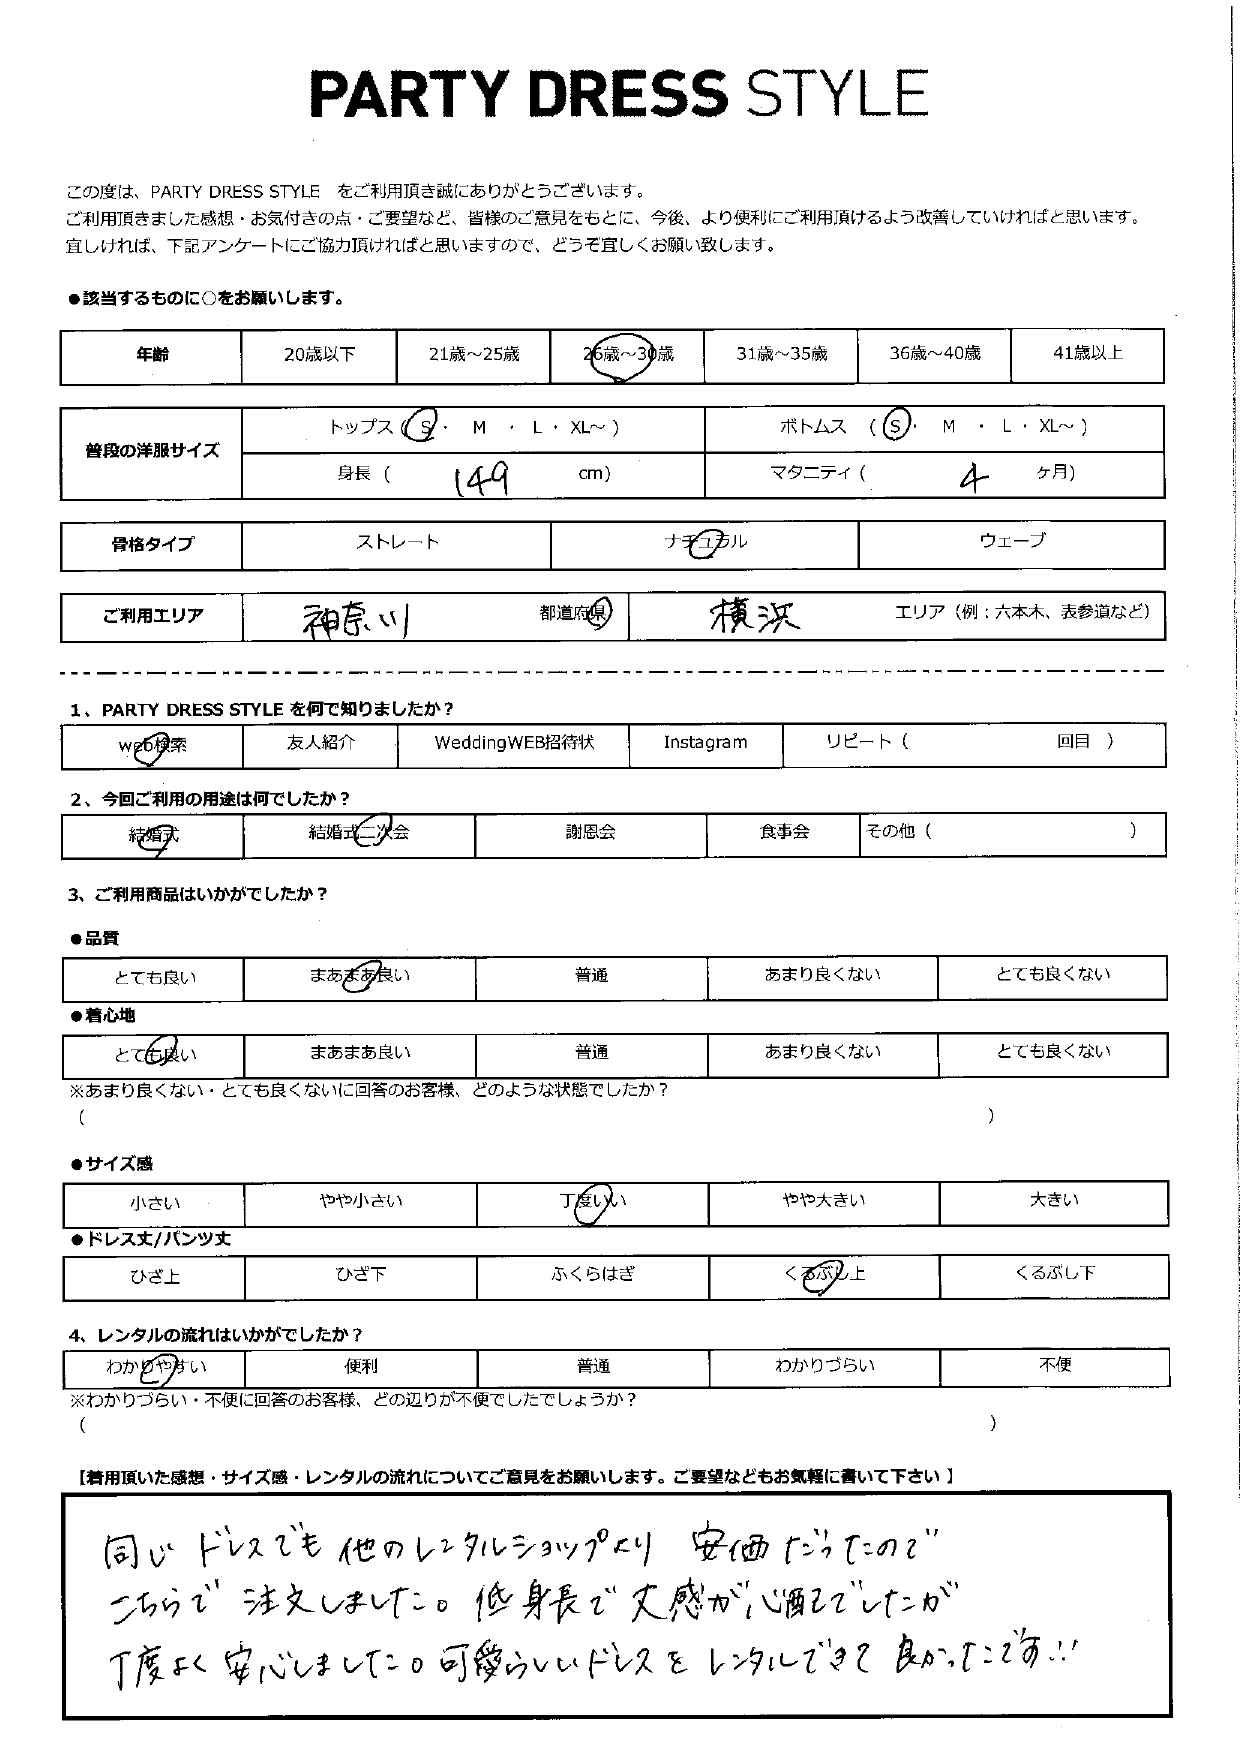 PARTY DRESS STYLE
この度は、PARTY DRESS STYLE　をご利用頂き誠にありがとうございます。
ご利用頂きました感想・お気付きの点・ご要望など、皆様のご意見をもとに、今後、より便利にご利用頂けるよう改善していければと思います。
宜しければ、下記アンケートにご協力頂ければと思いますので、どうぞ宜しくお願い致します。
●該当するものに○をお願いします。
年齢 20歳以下 21歳～25歳 26歳～30歳 31歳～35歳 36歳～40歳 41歳以上
普段の洋服サイズ
トップス ( S ・ M ・ L ・ XL～ ) ボトムス ( S ・ M ・ L ・ XL～ )
身長 ( 149 cm) マタニティ ( 4 ヶ月)
骨格タイプ ストレート ナチュラル ウェーブ
ご利用エリア 神奈川 都道府県 横浜 エリア（例：六本木、表参道など）
1、PARTY DRESS STYLE を何で知りましたか？
web検索 友人紹介 WeddingWEB招待状 Instagram リピート ( 回目 )
2、今回ご利用の用途は何でしたか？
結婚式 結婚式二次会 謝恩会 食事会 その他 ( )
3、ご利用商品はいかがでしたか？
●品質
とても良い まあまあ良い 普通 あまり良くない とても良くない
●着心地
とても良い まあまあ良い 普通 あまり良くない とても良くない
※あまり良くない・とても良くないに回答のお客様、どのような状態でしたか？
( )
●サイズ感
小さい やや小さい 丁度いい やや大きい 大きい
●ドレス丈/パンツ丈
ひざ上 ひざ下 ふくらはぎ くるぶし上 くるぶし下
4、レンタルの流れはいかがでしたか？
わかりやすい 便利 普通 わかりづらい 不便
※わかりづらい・不便に回答のお客様、どの辺りが不便でしたでしょうか？
( )
【着用頂いた感想・サイズ感・レンタルの流れについてご意見をお願いします。ご要望などもお気軽に書いて下さい 】
同じドレスでも他のレンタルショップより 安価だったので
こちらで注文しました。低身長で丈感が心配でしたが
丁度よく安心しました。可愛らしいドレスをレンタルできて良かったです!!